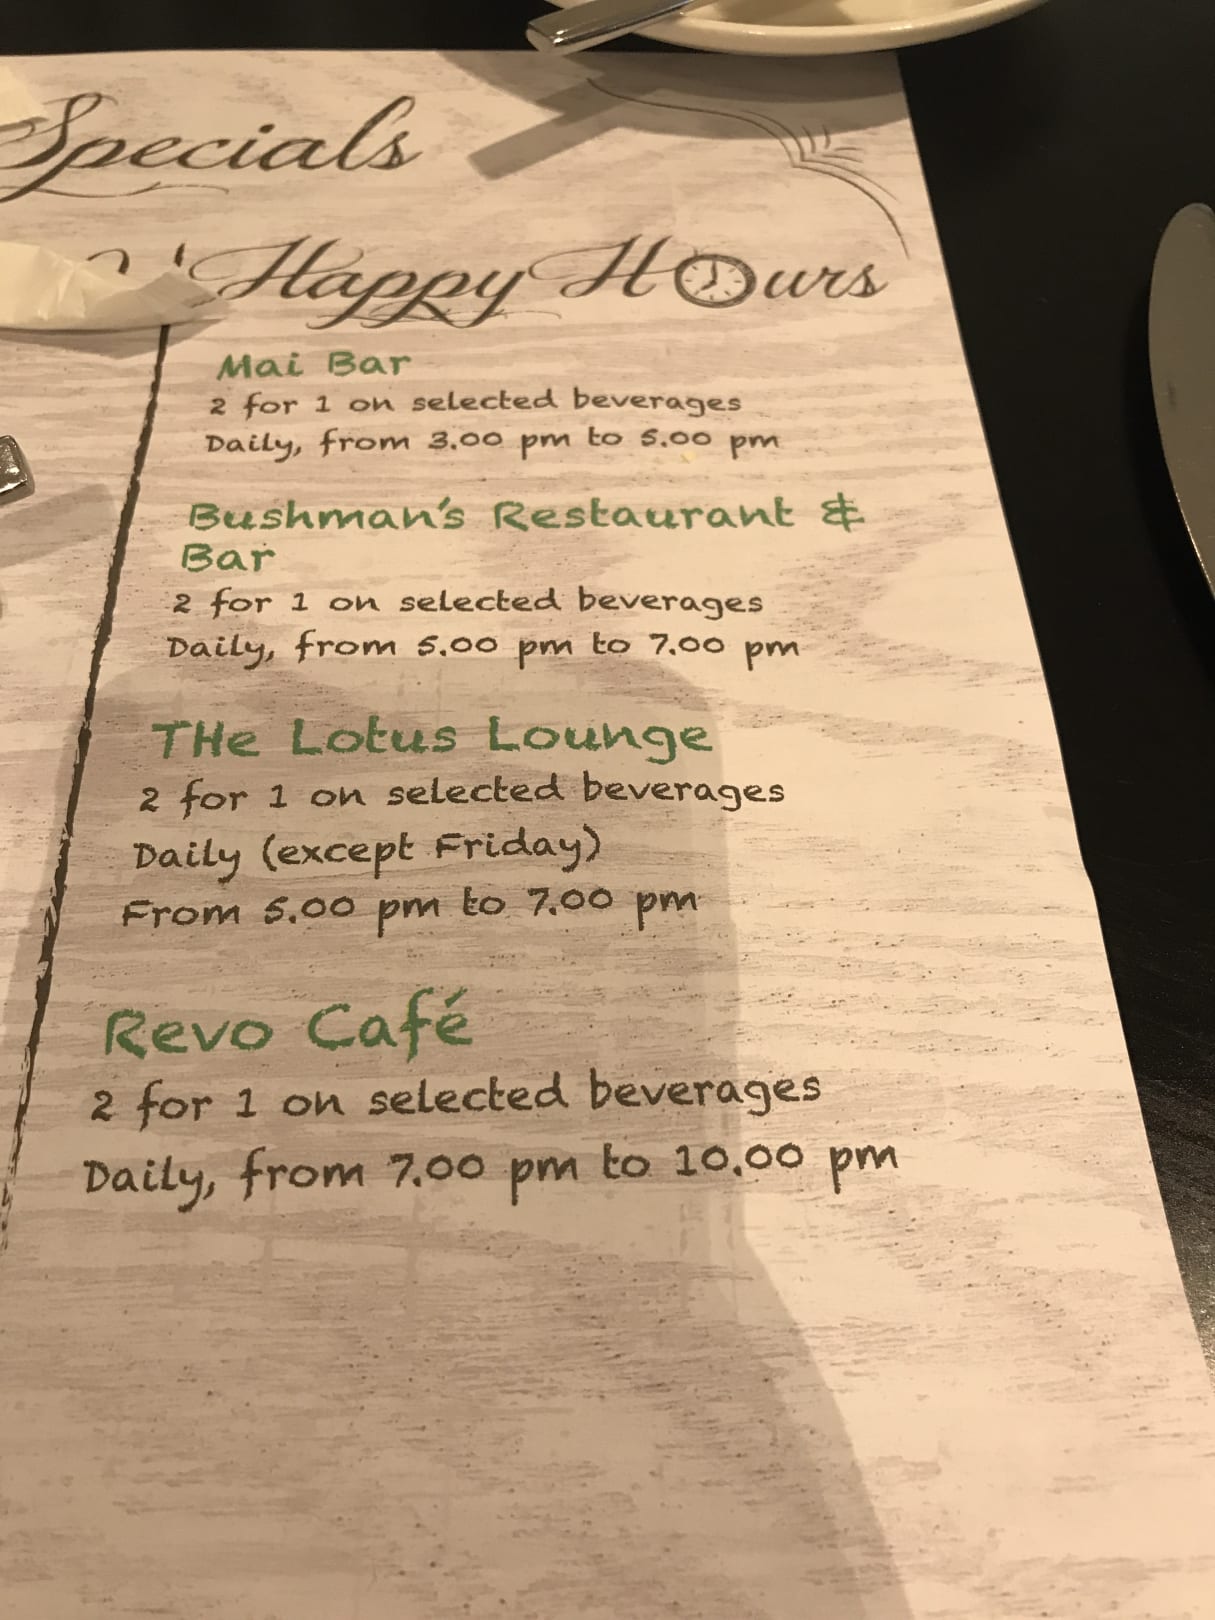 Specials
Happy Hours
Mai Bar
2 for 1 on selected beverages
Daily, from 3.00 pm to 5.00 pm
Bushman's Restaurant &
Bar
2 for 1 on selected beverages
Daily, from 5.00 pm to 7.00 pm
THe Lotus Lounge
2 for 1 on selected beverages
Daily (except Friday)
From 5.00 pm to 7.00 pm
Revo Café
2 for 1 on selected beverages
Daily, from 7.00 pm to 10.00 pm